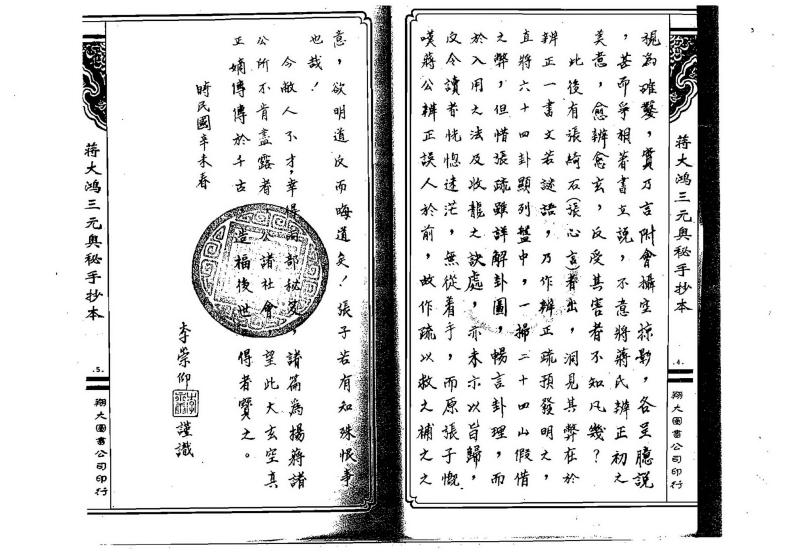 蔣大鴻三元奧秘手抄本
.4.
翔大圖書公司印行
視為確鑿,實乃言附會攝空掠影,各呈臆說
,甚而爭相著書立說,不意將蔣氏辨正初之
美意,愈辨愈玄,反受其害者不知凡幾?
此後有張綺石(張心言)者出,洞見其弊在於
辨正一書文若謎語,乃作辨正疏預發明之,
直將六十四卦顯列盤中,一掃二十四山假借
之弊,但惜張疏雖詳解卦圖,暢言卦理,而
於入用之法及收龍之訣處,亦未示以旨歸,
反令讀者恍惚迷茫,無從着手,而原張子慨
嘆蔣公辨正誤人於前,故作疏以救之補之之
意,欲明道反而晦道矣!張子若有知殊恨事
也哉!
今敝人不才,幸得兩部秘笈,諸篇為揚蔣諸
公所不肯盡露者 公諸社會 望此大玄空真
正嫡傳傳於千古 造福後世 得者寶之。
時民國辛未春
李崇仰 謹識
蔣大鴻三元奧秘手抄本
.5.
翔大圖書公司印行